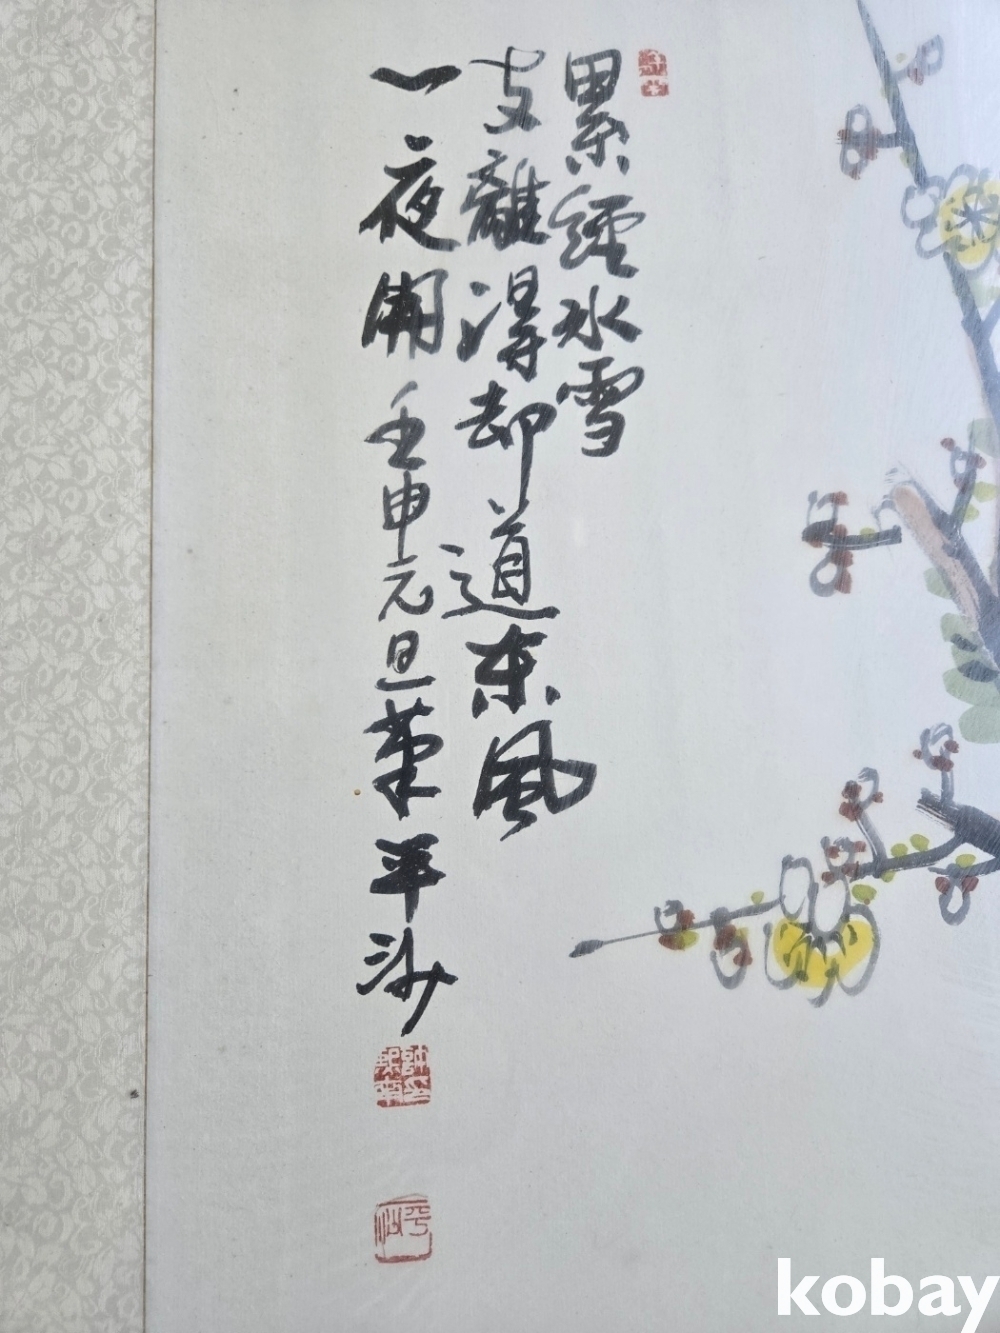 累經冰雪
支離得却道東風
一夜開 壬申元旦 草 平沙
kobay